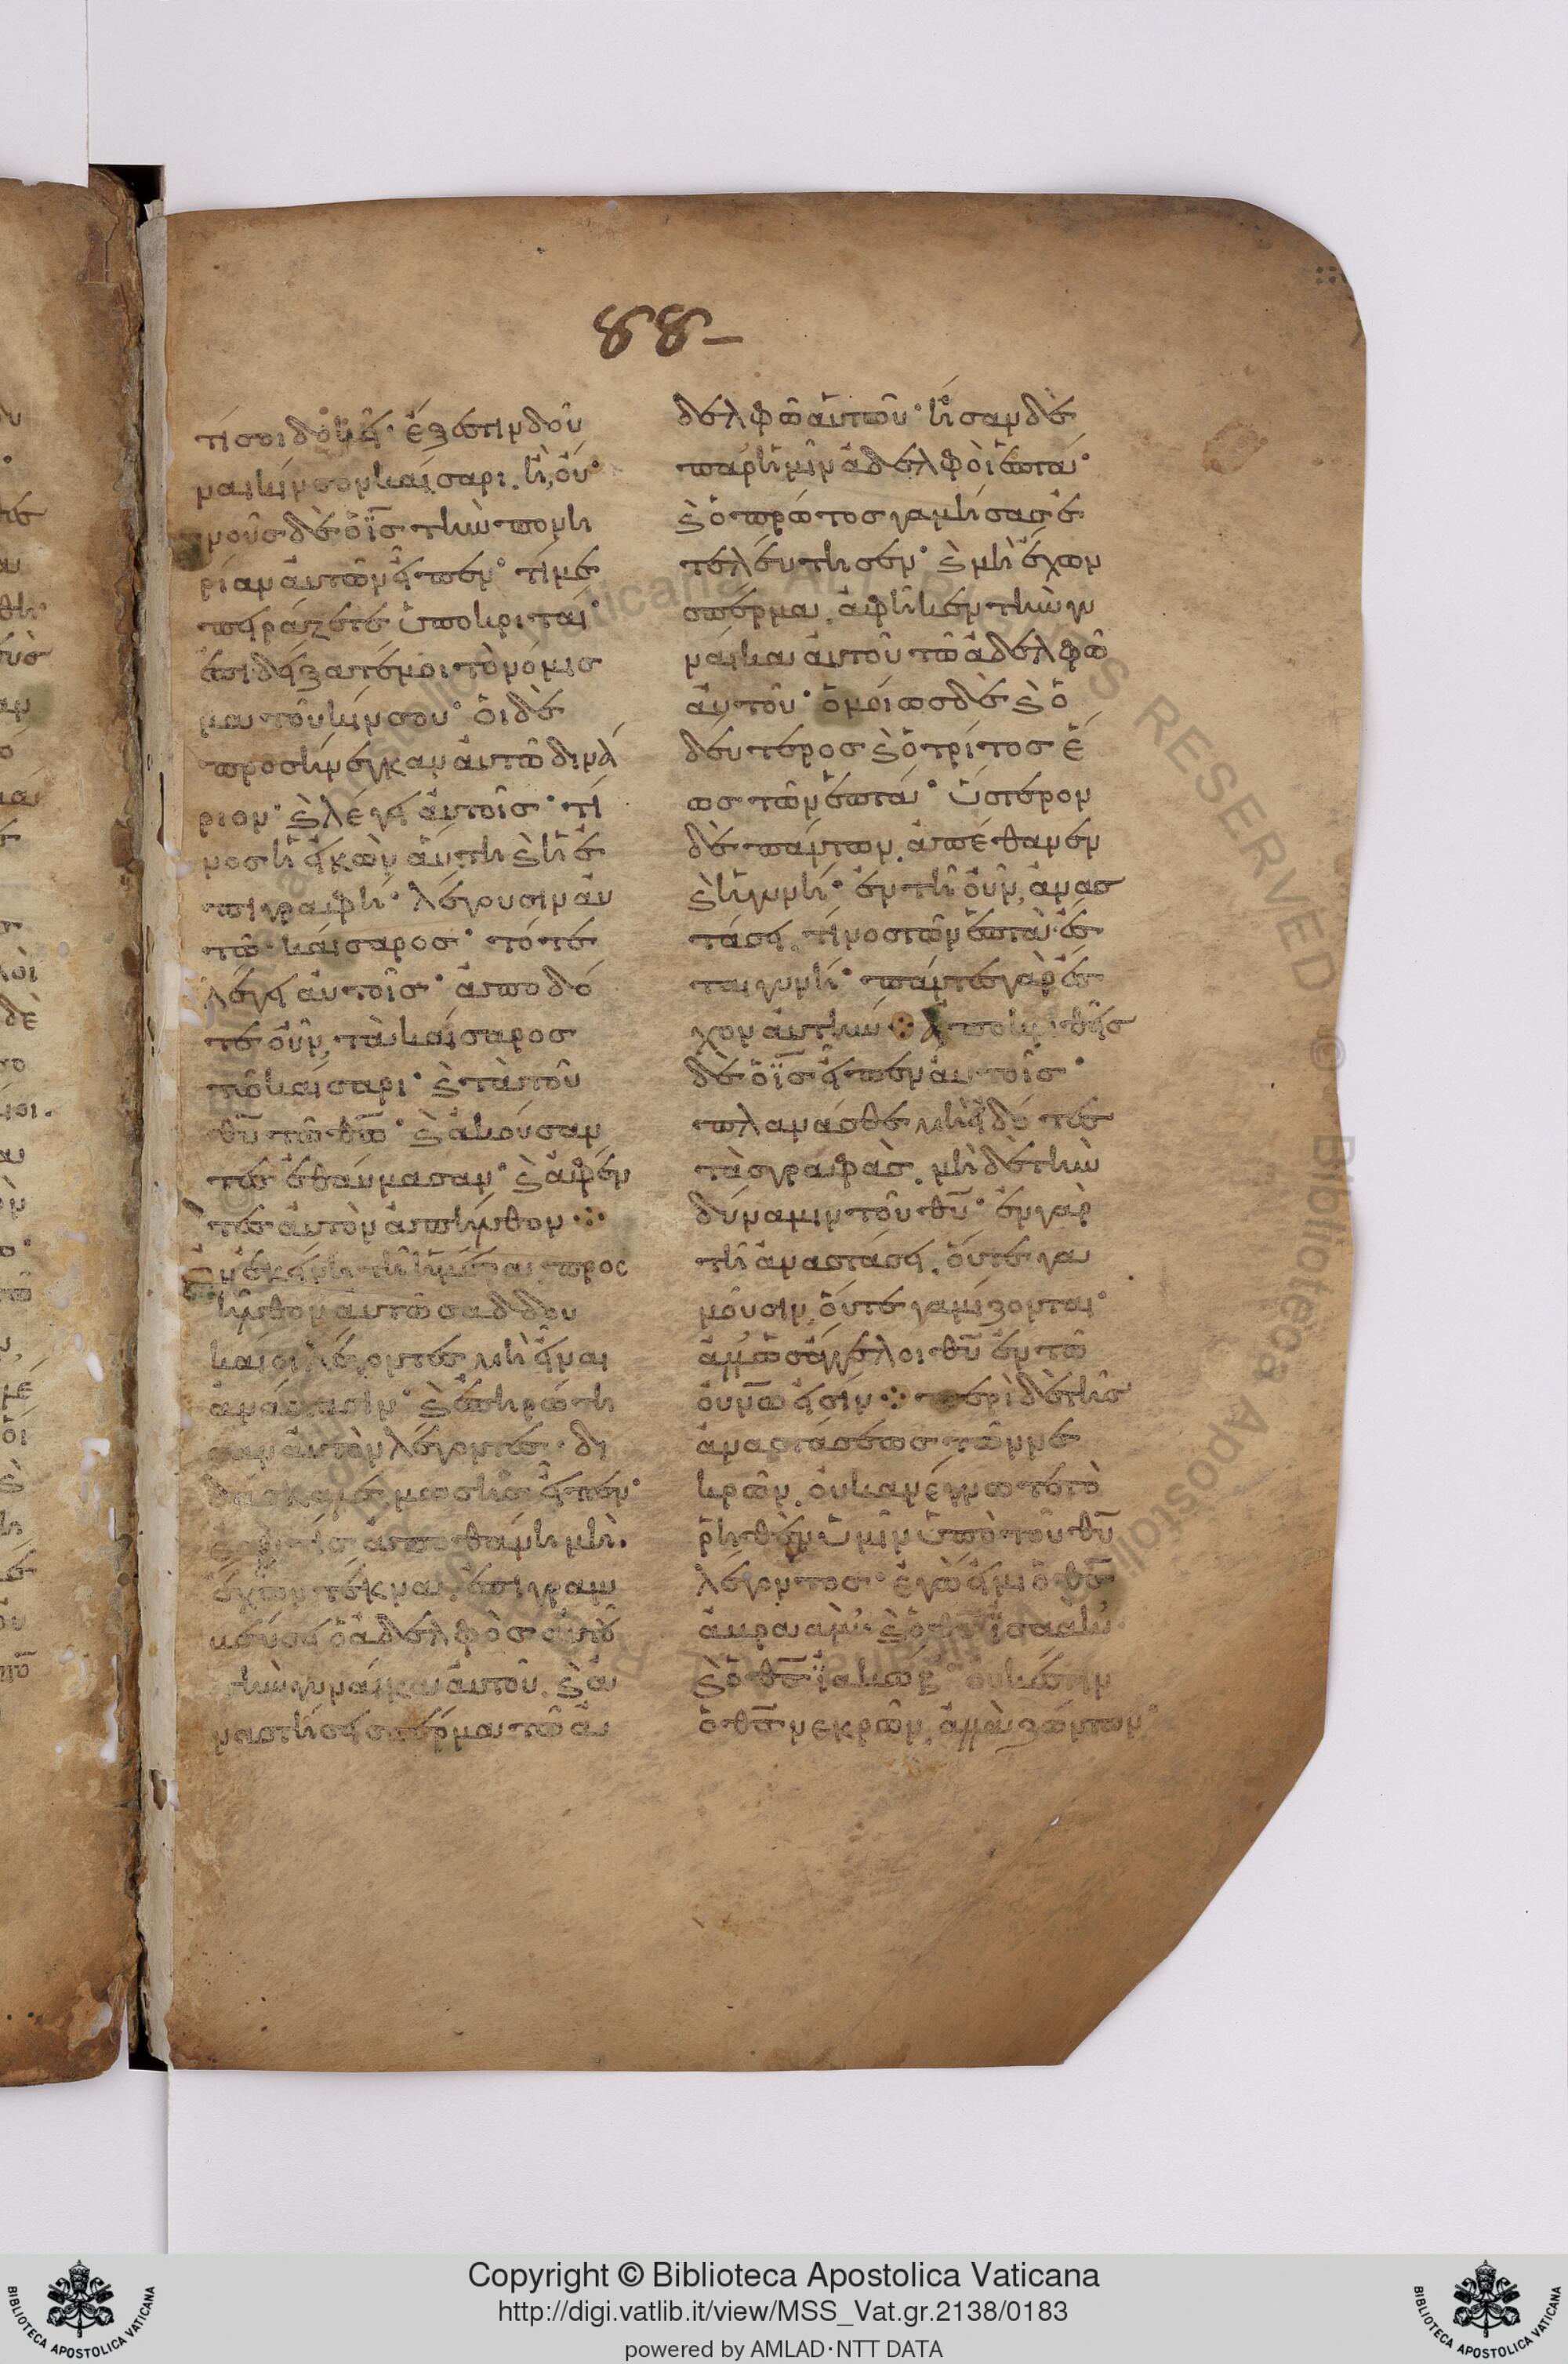 88-
τί σοι δοκεῖ· ἔξεστιν δοῦ
ναι κῆνσον καίσαρι. ἢ οὔ·
γνοῦς δὲ ὁ ῑς τὴν πονη
ρίαν αὐτῶν εἶπεν· τί με
πειράζετε ὑποκριταί·
ἐπιδείξατέ μοι τὸ νόμισ
μα τοῦ κήνσου· οἱ δὲ
προσήνεγκαν αὐτῶ δηνά
ριον· ϗ λέγει αὐτοῖς· τί
νος ἡ εἰκὼν αὕτη ϗ ἡ ἐ
πιγραφή· λέγουσιν αὐ
τῶ· καίσαρος· τότε
λέγει αὐτοῖς· ἀπόδο
τε οὖν, τὰ καίσαρος
τῶ καίσαρι· ϗ τὰ τοῦ
θῡ τῶ θῶ· ϗ ἀκούσαν
τες ἐθαύμασαν· ϗ ἀφέν
τες αὐτὸν ἀπῆλθον ·:·
Ἐν ἐκείνη τῆ ἡμέρα, προς
ῆλθον αὐτῶ σαδδου
καίοι λέγοντες μὴ εἶναι
ἀνάστασιν· ϗ ἐπηρώτη
σαν αὐτὸν λέγοντες· δι
δάσκαλε μωσῆς εἶπεν·
ἐάν τις ἀποθάνη μὴ.
ἔχων τέκνα, ἐπιγαμ
βρεύσει ὁ ἀδελφὸς αὐτοῦ
τὴν γυναίκα αὐτοῦ, ϗ ἀ
ναστήσει σπέρμα τῶ ἀ
δελφῶ αὐτοῦ· ἦσαν δὲ
παρ' ἡμῖν ἀδελφοὶ ἑπτά·
ϗ ὁ πρώτος γαμήσας ἐ
τελεύτησεν· ϗ μὴ ἔχων
σπέρμα, ἀφῆκεν τὴν γυ
ναίκα αὐτοῦ τῶ ἀδελφῶ
αὐτοῦ· ὁμοίως δὲ ϗ ὁ
δεύτερος ϗ ὁ τρίτος ἕ
ως τῶν ἑπτά· ὕστερον
δὲ πάντων, ἀπέθανεν
ϗ ἡ γυνή· ἐν τῆ οὖν, ἀνασ
τάσει, τίνος τῶν ἑπτὰ ἔσ
ται γυνή· πάντες γὰρ ἔσ
χον αὐτήν ·:· Ἀποκριθεὶς
δὲ ὁ ῑς εἶπεν αὐτοῖς·
πλανάσθε μὴ εἰδότες
τὰς γραφὰς, μὴ δὲ τὴν
δύναμιν τοῦ θῡ· ἐν γὰρ
τῆ ἀναστάσει, οὔτε γα
μοῦσιν, οὔτε γαμίζονται·
ἀλλ' ὡς ἄγγελοι θῡ ἐν τῶ
οὐνῶ εἰσίν ·:· περὶ δὲ τῆς
ἀναστάσεως τῶν νε
κρῶν, οὐκ ἀνέγνωτε τὸ
ῥηθὲν ὑμῖν ὑπὸ τοῦ θῡ
λέγοντος· ἐγὼ εἰμι ὁ θς
ἀβραὰμ· ϗ ὁ θς ἰσαάκ·
ϗ ὁ θς ἰακώβ· οὐκ ἔστιν
ὁ θς νεκρῶν, ἀλλὰ ζώντων·
Copyright © Biblioteca Apostolica Vaticana
http://digi.vatlib.it/view/MSS_Vat.gr.2138/0183
powered by AMLAD·NTT DATA
BIBLIOTECA APOSTOLICA VATICANA
BIBLIOTECA APOSTOLICA VATICANA